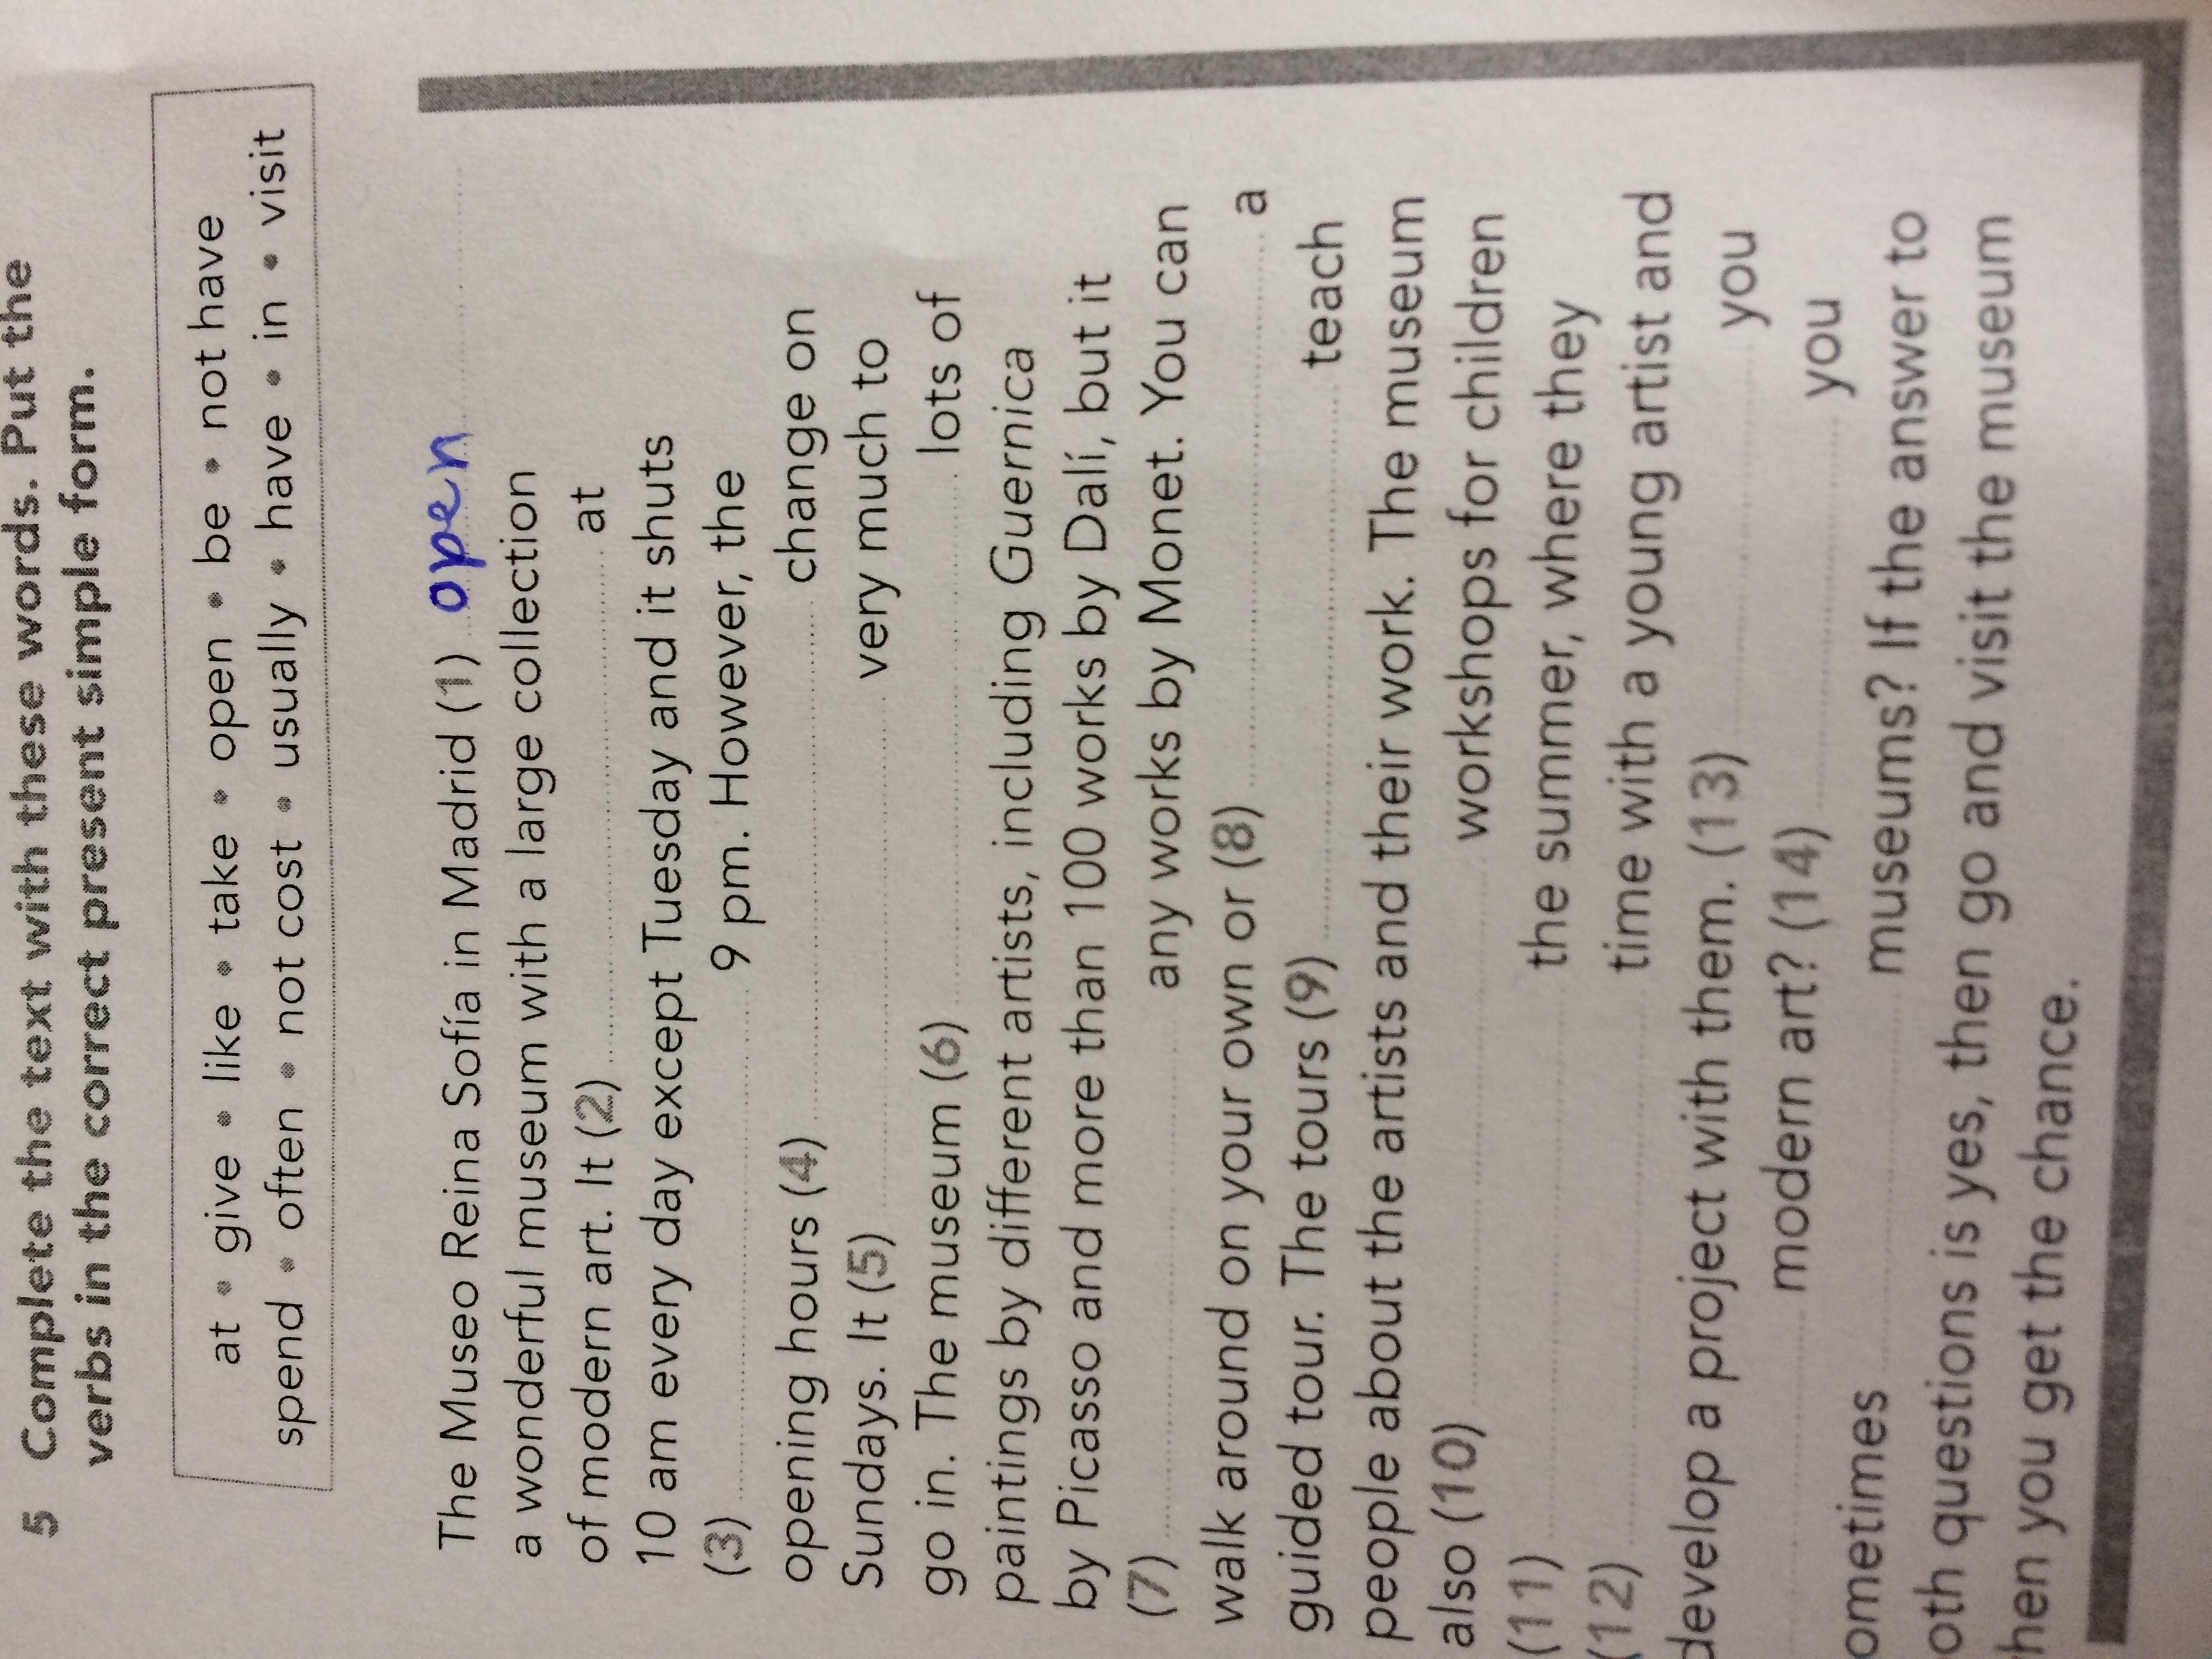 5 Complete the text with these words. Put the
verbs in the correct present simple form.
at • give • like • take • open • be • not have
spend • often • not cost • usually • have • in • visit
The Museo Reina Sofía in Madrid (1) open
a wonderful museum with a large collection
of modern art. It (2) at
10 am every day except Tuesday and it shuts
(3) 9 pm. However, the
opening hours (4) change on
Sundays. It (5) very much to
go in. The museum (6) lots of
paintings by different artists, including Guernica
by Picasso and more than 100 works by Dalí, but it
(7) any works by Monet. You can
walk around on your own or (8) a
guided tour. The tours (9) teach
people about the artists and their work. The museum
also (10) workshops for children
(11) the summer, where they
(12) time with a young artist and
develop a project with them. (13) you
modern art? (14) you
ometimes museums? If the answer to
oth questions is yes, then go and visit the museum
hen you get the chance.